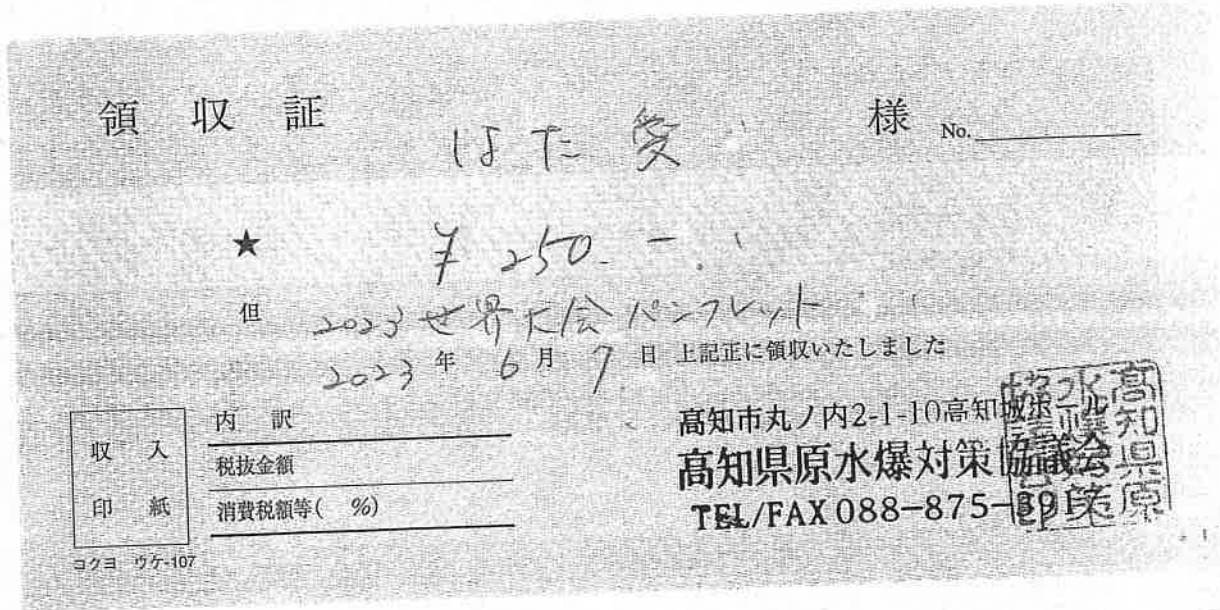 領収証 はた愛 様 No.
★ ¥250.-
但 2023世界大会パンフレット
2023年6月7日 上記正に領収いたしました
収入
印紙
内訳
税抜金額
消費税額等( %)
コクヨ ウケ-107
高知市丸ノ内2-1-10高知城ホール
高知県原水爆対策協議会
TEL/FAX 088-875-